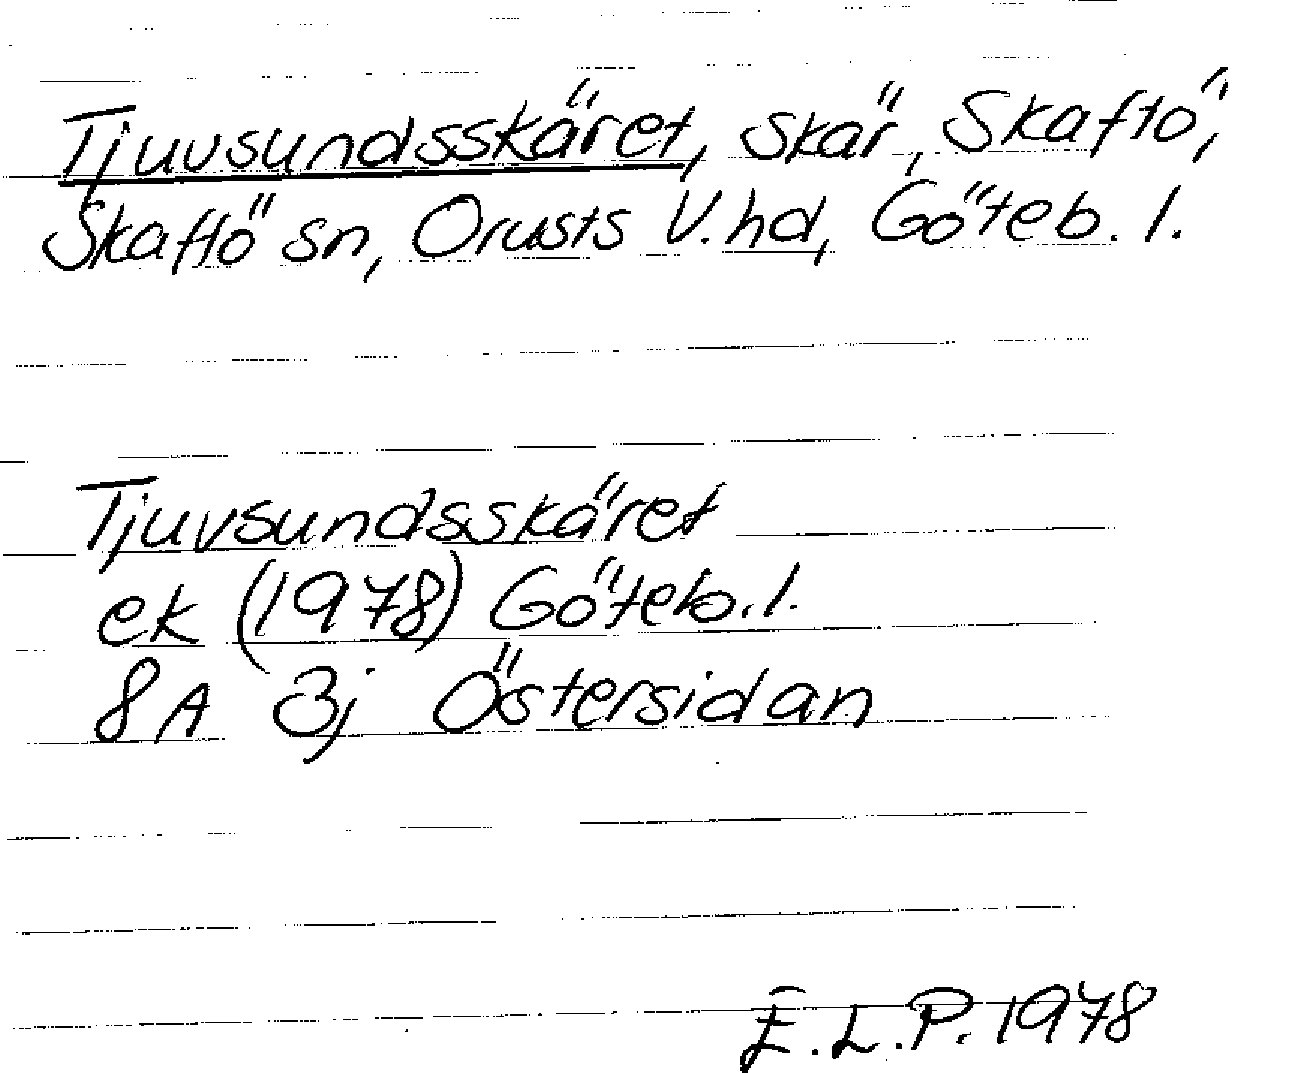 Tjuvsundsskäret, skär, Skaftö,
Skaftö sn, Orusts V.hd, Göteb. l.
Tjuvsundsskäret
ek (1978) Göteb. l.
8A 3j Östersidan
E.L.P. 1978